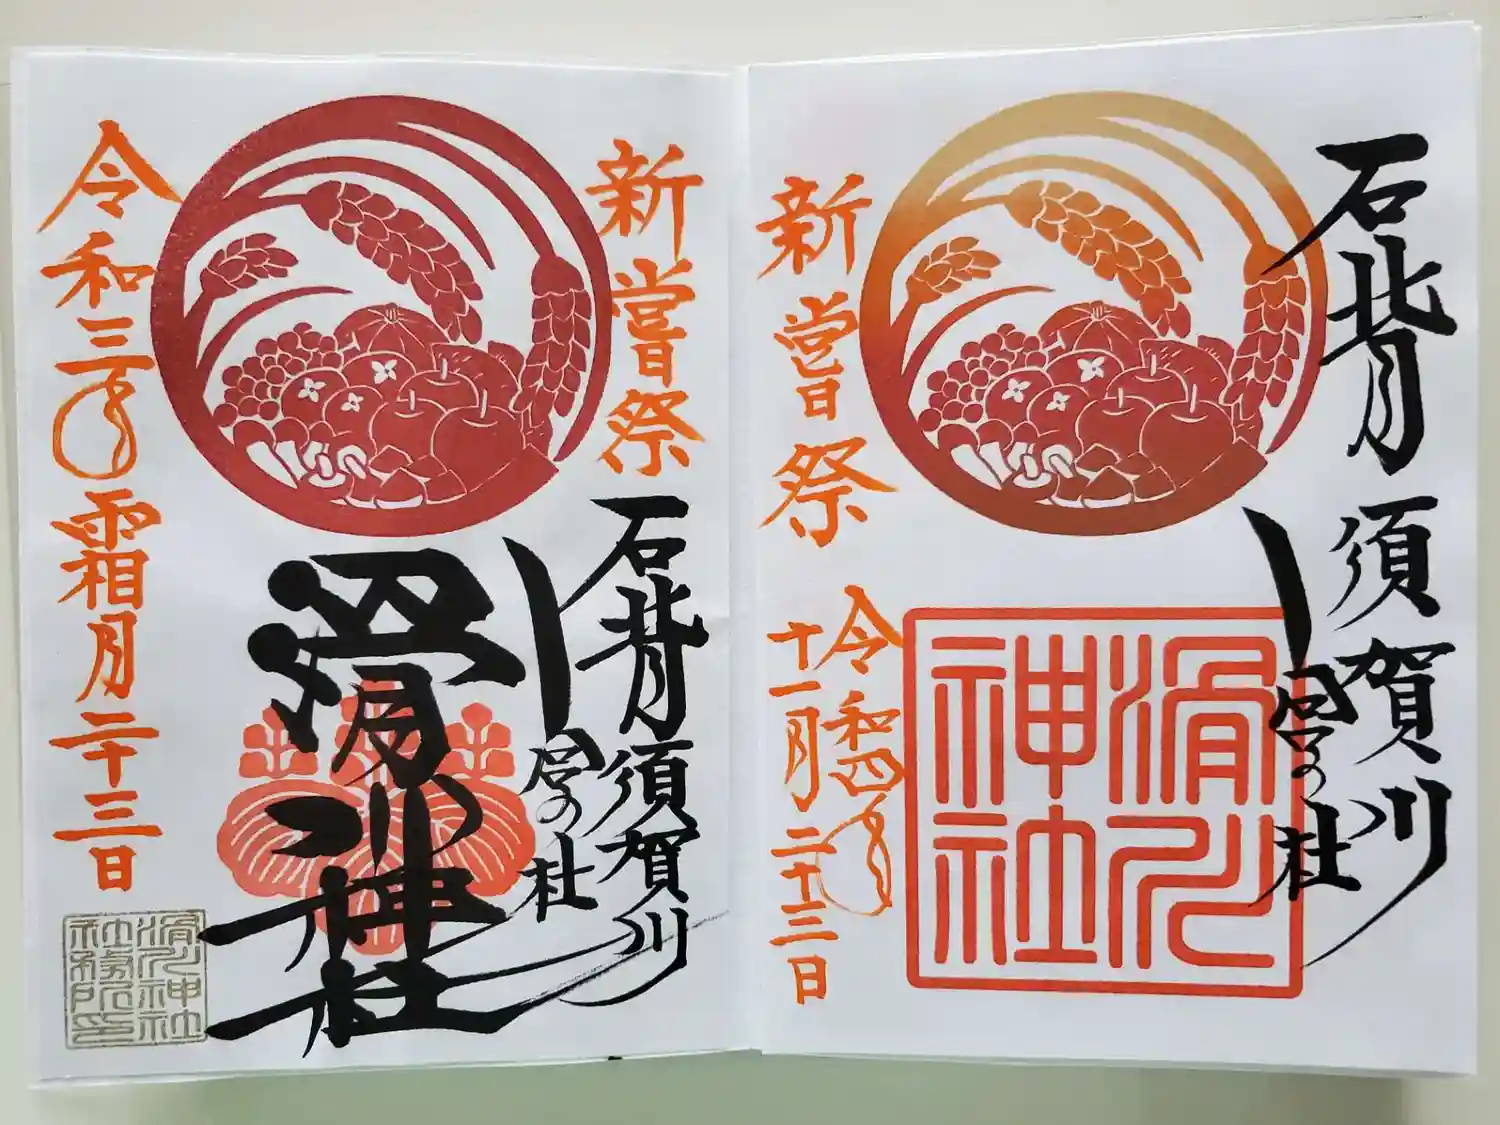 石背 須賀川
宮の杜
滑川神社
新嘗祭
令和四年
十一月二十三日
新嘗祭
石背 須賀川
宮の杜
滑川神社
令和三年霜月二十三日
滑川神社
社務所印